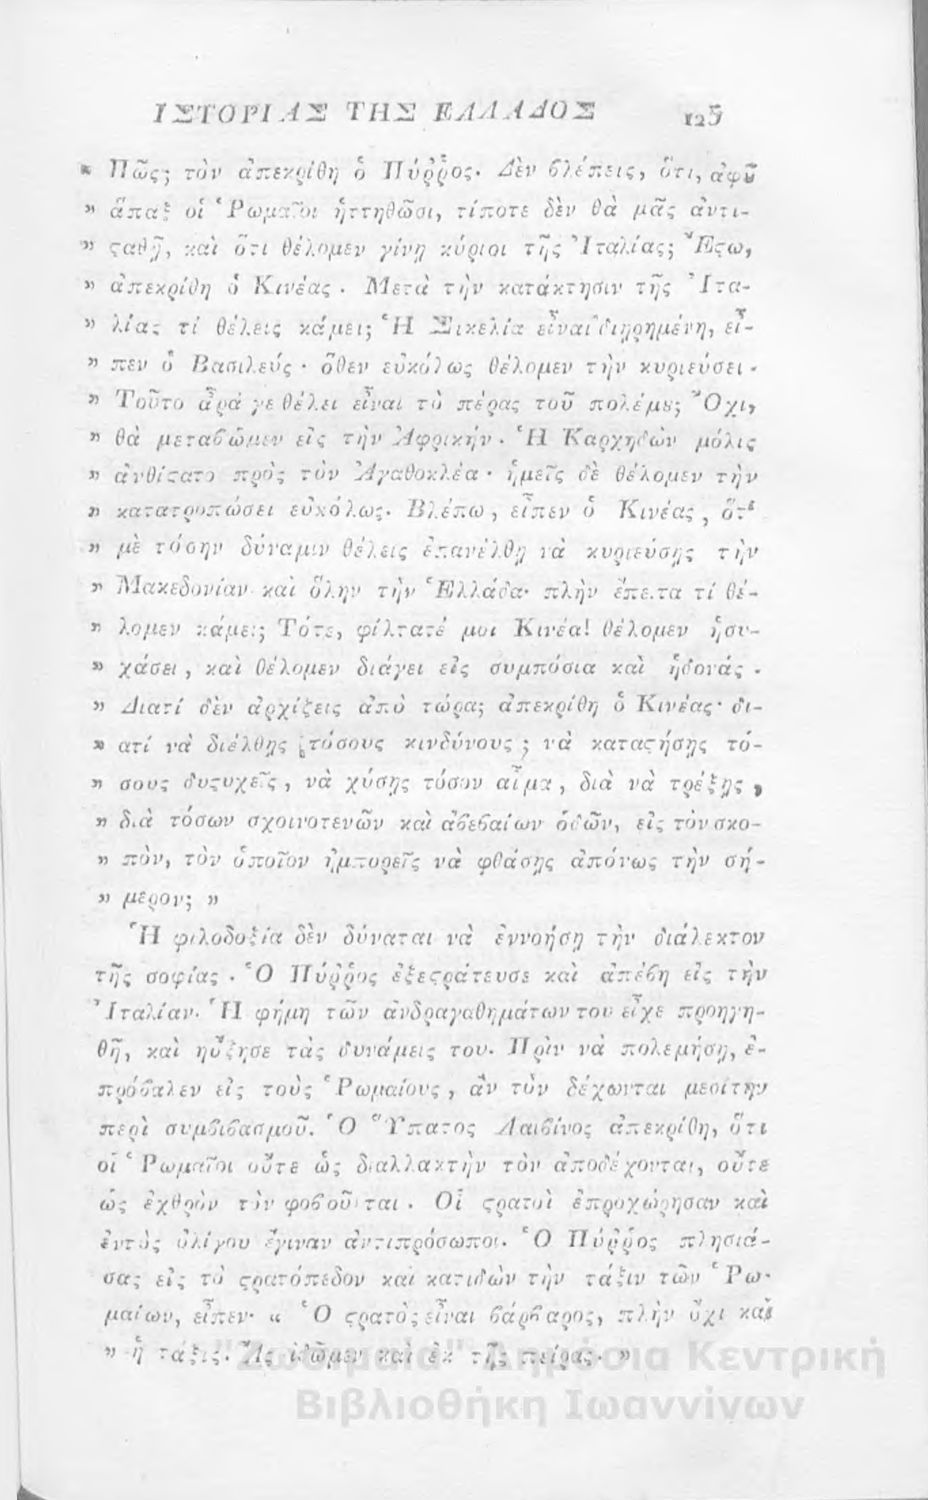 ΙΣΤΟΡΙΑΣ ΤΗΣ ΕΛΛΑΔΟΣ 125
» Πῶς; τὸν ἀπεκρίθη ὁ Πύῤῥος· Δὲν βλέπεις, ὅτι, ἀφȣ͂
» ἅπαξ οἱ Ῥωμαῖοι ἡττηθῶσι, τίποτε δὲν θὰ μᾶς ἀντι-
» ϛαθῇ, καὶ ὅτι θέλομεν γίνῃ κύριοι τῆς Ἰταλίας; Ἔϛω,
» ἀπεκρίθη ὁ Κινέας· Μετὰ τὴν κατάκτησιν τῆς Ἰτα-
» λίας τί θέλεις κάμει; Ἡ Σικελία εἶναι διῃρημένη, εἶ-
» πεν ὁ Βασιλεύς· ὅθεν εὐκόλως θέλομεν τὴν κυριεύσει·
» Τοῦτο ἆρά γε θέλει εἶναι τὸ πέρας τοῦ πολέμȣ; Ὄχι,
» θὰ μεταβῶμεν εἰς τὴν Ἀφρικήν· Ἡ Καρχηδὼν μόλις
» ἀνθίϛατο πρὸς τὸν Ἀγαθοκλέα· ἡμεῖς δὲ θέλομεν τὴν
» κατατροπώσει εὐκόλως· Βλέπω, εἶπεν ὁ Κινέας, ὅτι
» μὲ τόσην δύναμιν θέλεις ἐπανέλθῃ νὰ κυριεύσῃς τὴν
» Μακεδονίαν καὶ ὅλην τὴν Ἑλλάδα· πλὴν ἔπειτα τί θέ-
» λομεν κάμει; Τότε, φίλτατέ μοι Κινέα! θέλομεν ἡσυ-
» χάσει, καὶ θέλομεν διάγει εἰς συμπόσια καὶ ἡδονάς.
» Διατί δὲν ἀρχίζεις ἀπὸ τώρα; ἀπεκρίθη ὁ Κινέας· δι-
» ατί νὰ διέλθῃς τόσους κινδύνους; νὰ καταϛήσῃς τό-
» σους δυϛυχεῖς, νὰ χύσῃς τόσον αἷμα, διὰ νὰ τρέξῃς,
» διὰ τόσων σχοινοτενῶν καὶ ἀβεβαίων ὁδῶν, εἰς τὸν σκο-
» πὸν, τὸν ὁποῖον ἠμπορεῖς νὰ φθάσῃς ἀπόνως τὴν σή-
» μερον; »
Ἡ φιλοδοξία δὲν δύναται νὰ ἐννοήσῃ τὴν διάλεκτον
τῆς σοφίας· Ὁ Πύῤῥος ἐξεϛράτευσε καὶ ἀπέβη εἰς τὴν
Ἰταλίαν· Ἡ φήμη τῶν ἀνδραγαθημάτων του εἶχε προηγη-
θῆ, καὶ ηὔξησε τὰς δυνάμεις του· Πρὶν νὰ πολεμήσῃ, ἐ-
πρόβαλεν εἰς τοὺς Ῥωμαίους, ἂν τὸν δέχωνται μεσίτην
περὶ συμβιβασμοῦ. Ὁ Ὕπατος Λαιβίνος ἀπεκρίθη, ὅτι
οἱ Ῥωμαῖοι οὔτε ὡς διαλλακτὴν τὸν ἀποδέχονται, οὔτε
ὡς ἐχθρὸν τὸν φοβοῦνται. Οἱ ϛρατοὶ ἐπροχώρησαν καὶ
ἐντὸς ὀλίγου ἔγιναν ἀντιπρόσωποι. Ὁ Πύῤῥος πλησιά-
σας εἰς τὸ ϛρατόπεδον καὶ κατιδὼν τὴν τάξιν τῶν Ῥω-
μαίων, εἶπεν· « Ὁ ϛρατὸς εἶναι βάρβαρος, πλὴν ὄχι καὶ
» ἡ τάξις· Ἂς ἰδῶμεν καὶ ἐκ τῆς πείρας· »
"Ζωσιμαία" Δημόσια Κεντρική
Βιβλιοθήκη Ιωαννίνων